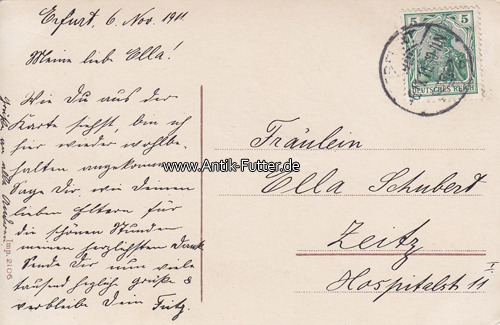 Erfurt, 6. Nov. 1911.
Meine liebe Ella!
Wie Du aus der
Karte siehst, bin ich
hier wieder wohlbe-
halten angekommen.
Sage Dir, wie Deinen
lieben Eltern für
die schönen Stunden
meinen herzlichsten Dank.
Sende Dir nun viele
tausend herzlich grüße &
verbleibe Dein Fritz.
Grüße an alle Anderen
Imp. 2106
5 5
DEUTSCHES REICH
www.Antik-Futter.de
Fräulein
Ella Schubert
Zeitz
Hospitalst 11
I.